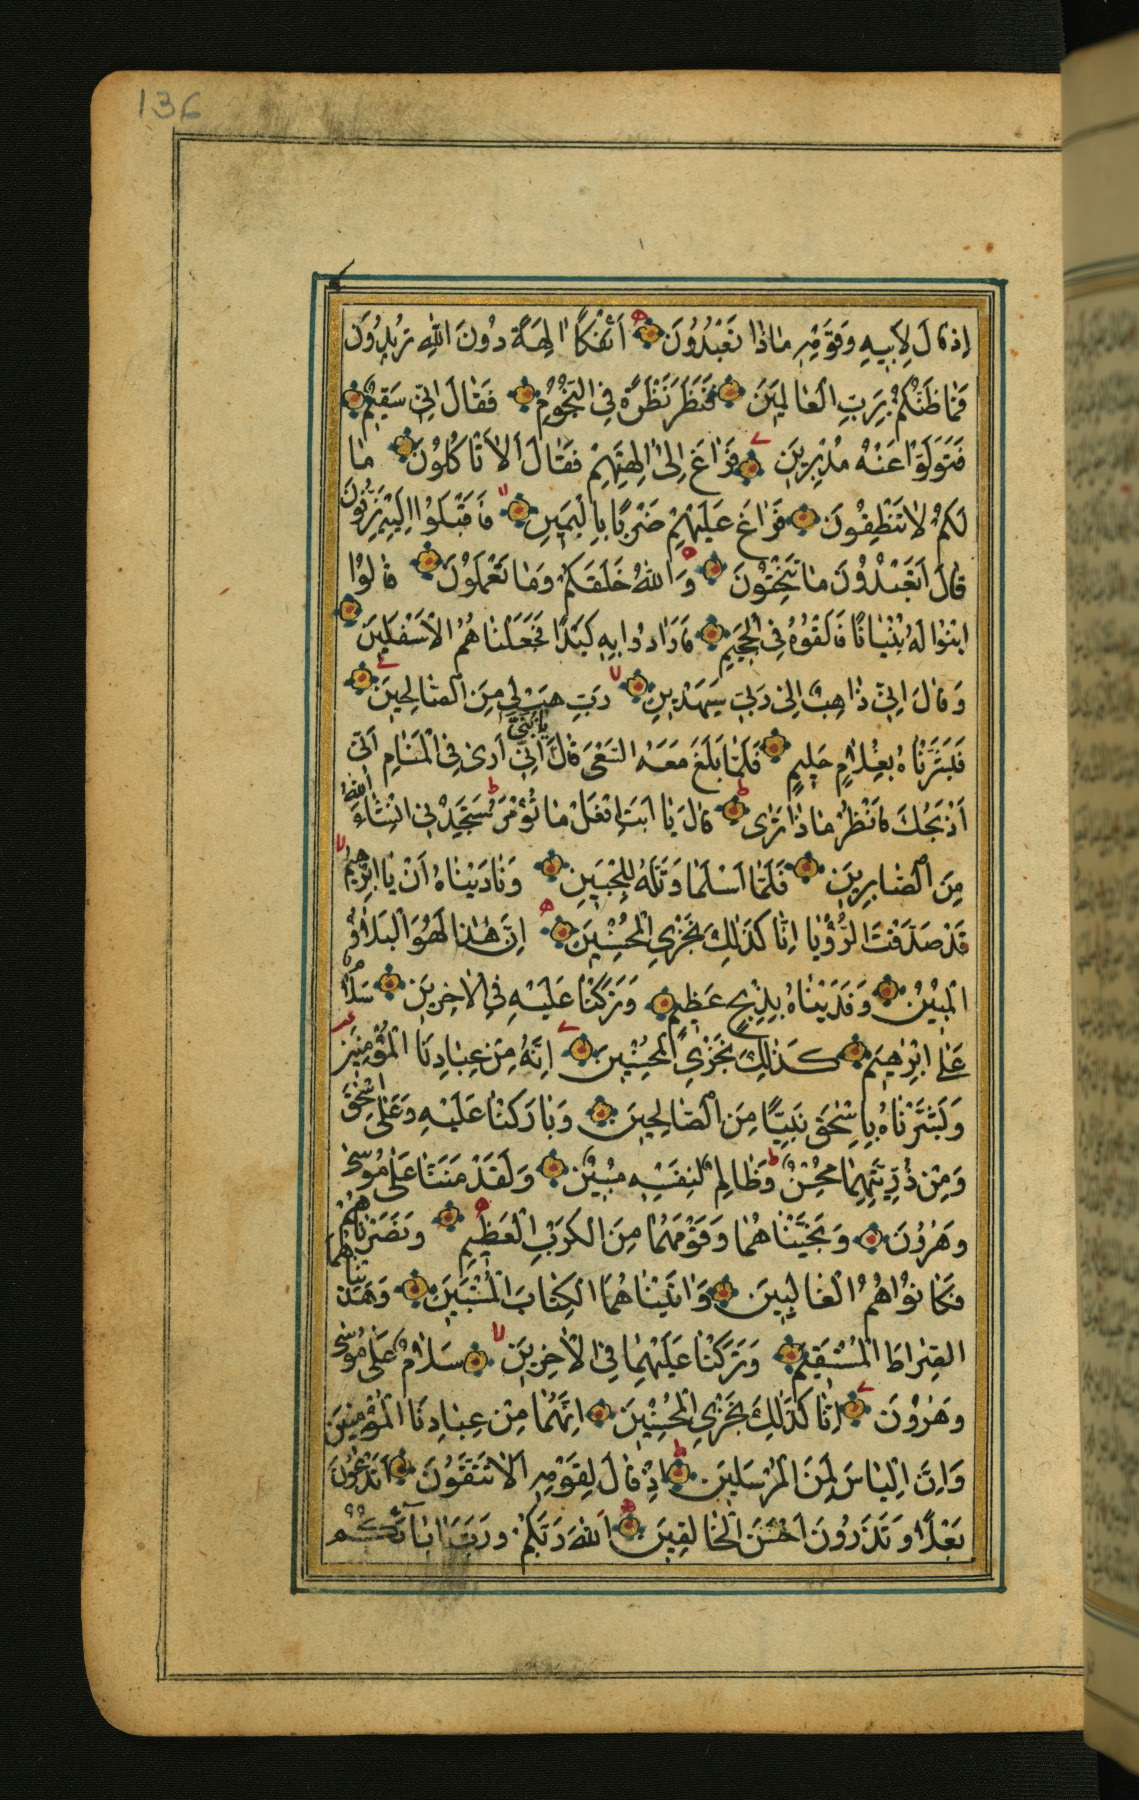 136
اِذْ قَالَ لِاَبِيهِ وَقَوْمِهِ مَاذَا تَعْبُدُونَ اَئِفْكًا اٰلِهَةً دُونَ اللّٰهِ تُرِيدُونَ
فَمَا ظَنُّكُمْ بِرَبِّ الْعَالَمِينَ فَنَظَرَ نَظْرَةً فِي النُّجُومِ فَقَالَ اِنِّي سَقِيمٌ
فَتَوَلَّوْا عَنْهُ مُدْبِرِينَ فَرَاغَ اِلٰى اٰلِهَتِهِمْ فَقَالَ اَلَا تَاْكُلُونَ مَا
لَكُمْ لَا تَنْطِقُونَ فَرَاغَ عَلَيْهِمْ ضَرْبًا بِالْيَمِينِ فَاَقْبَلُوا اِلَيْهِ يَزِفُّونَ
قَالَ اَتَعْبُدُونَ مَا تَنْحِتُونَ وَاللّٰهُ خَلَقَكُمْ وَمَا تَعْمَلُونَ قَالُوا
ابْنُوا لَهُ بُنْيَانًا فَاَلْقُوهُ فِي الْجَحِيمِ فَاَرَادُوا بِهِ كَيْدًا فَجَعَلْنَاهُمُ الْاَسْفَلِينَ
وَقَالَ اِنِّي ذَاهِبٌ اِلٰى رَبِّي سَيَهْدِينِ رَبِّ هَبْ لِي مِنَ الصَّالِحِينَ
فَبَشَّرْنَاهُ بِغُلَامٍ حَلِيمٍ فَلَمَّا بَلَغَ مَعَهُ السَّعْيَ قَالَ يَا بُنَيَّ اِنِّي اَرٰى فِي الْمَنَامِ اَنِّي
اَذْبَحُكَ فَانْظُرْ مَاذَا تَرٰى قَالَ يَا اَبَتِ افْعَلْ مَا تُؤْمَرُ سَتَجِدُنِي اِنْ شَاءَ اللّٰهُ
مِنَ الصَّابِرِينَ فَلَمَّا اَسْلَمَا وَتَلَّهُ لِلْجَبِينِ وَنَادَيْنَاهُ اَنْ يَا اِبْرٰهِيمُ
قَدْ صَدَّقْتَ الرُّؤْيَا اِنَّا كَذٰلِكَ نَجْزِي الْمُحْسِنِينَ اِنَّ هٰذَا لَهُوَ الْبَلَاؤُ
الْمُبِينُ وَفَدَيْنَاهُ بِذِبْحٍ عَظِيمٍ وَتَرَكْنَا عَلَيْهِ فِي الْاٰخِرِينَ سَلَامٌ
عَلٰى اِبْرٰهِيمَ كَذٰلِكَ نَجْزِي الْمُحْسِنِينَ اِنَّهُ مِنْ عِبَادِنَا الْمُؤْمِنِينَ
وَبَشَّرْنَاهُ بِاِسْحٰقَ نَبِيًّا مِنَ الصَّالِحِينَ وَبَارَكْنَا عَلَيْهِ وَعَلٰى اِسْحٰقَ
وَمِنْ ذُرِّيَّتِهِمَا مُحْسِنٌ وَظَالِمٌ لِنَفْسِهِ مُبِينٌ وَلَقَدْ مَنَنَّا عَلٰى مُوسٰى
وَهٰرُونَ وَنَجَّيْنَاهُمَا وَقَوْمَهُمَا مِنَ الْكَرْبِ الْعَظِيمِ وَنَصَرْنَاهُمْ
فَكَانُوا هُمُ الْغَالِبِينَ وَاٰتَيْنَاهُمَا الْكِتَابَ الْمُسْتَبِينَ وَهَدَيْنَاهُمَا
الصِّرَاطَ الْمُسْتَقِيمَ وَتَرَكْنَا عَلَيْهِمَا فِي الْاٰخِرِينَ سَلَامٌ عَلٰى مُوسٰى
وَهٰرُونَ اِنَّا كَذٰلِكَ نَجْزِي الْمُحْسِنِينَ اِنَّهُمَا مِنْ عِبَادِنَا الْمُؤْمِنِينَ
وَاِنَّ اِلْيَاسَ لَمِنَ الْمُرْسَلِينَ اِذْ قَالَ لِقَوْمِهِ اَلَا تَتَّقُونَ اَتَدْعُونَ
بَعْلًا وَتَذَرُونَ اَحْسَنَ الْخَالِقِينَ اَللّٰهَ رَبَّكُمْ وَرَبَّ اٰبَائِكُمْ